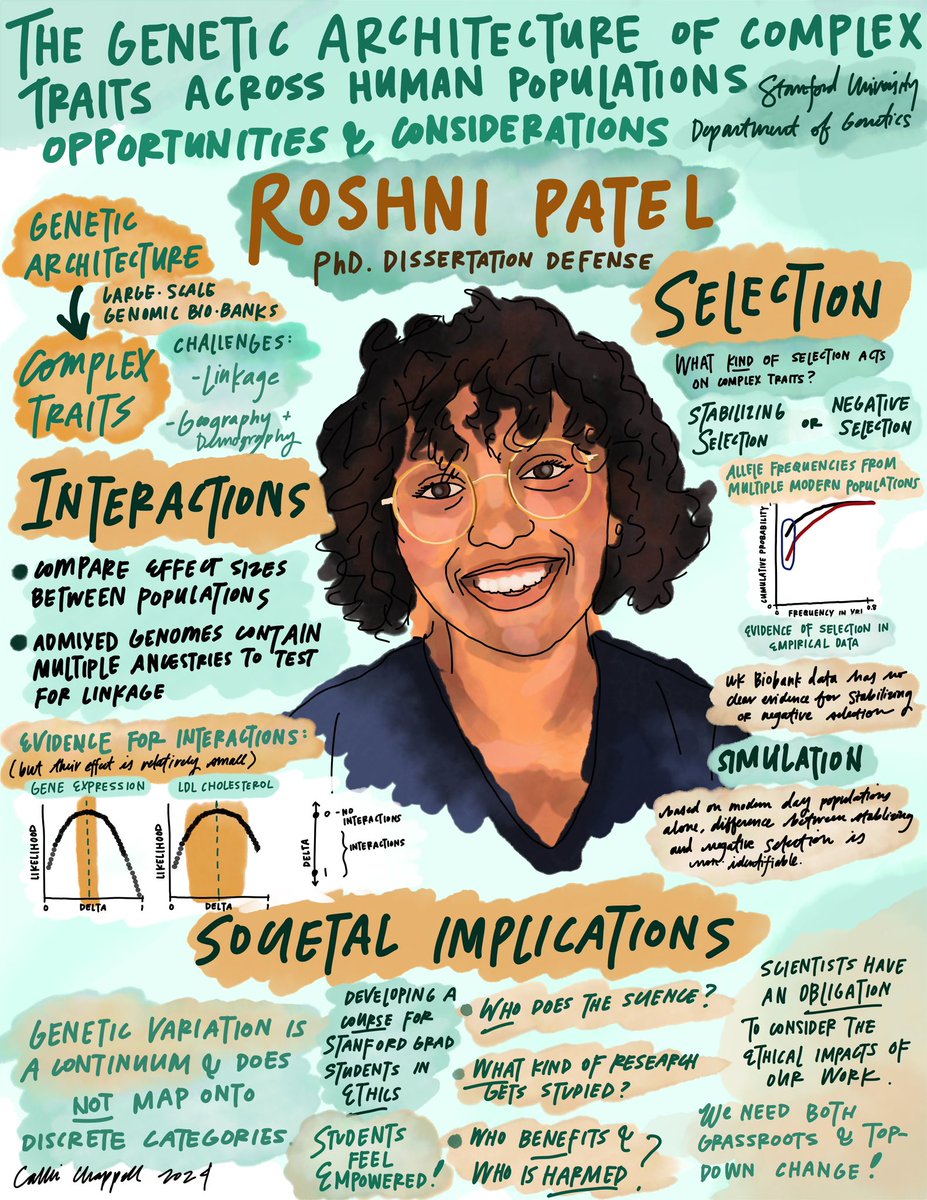 THE GENETIC ARCHITECTURE OF COMPLEX
TRAITS ACROSS HUMAN POPULATIONS
OPPORTUNITIES & CONSIDERATIONS
Stanford University
Department of Genetics
ROSHNI PATEL
PhD. DISSERTATION DEFENSE
GENETIC
ARCHITECTURE
LARGE-SCALE
GENOMIC BIO-BANKS
COMPLEX
TRAITS
CHALLENGES:
-Linkage
-Geography +
Demography
INTERACTIONS
• COMPARE EFFECT SIZES
BETWEEN POPULATIONS
• ADMIXED GENOMES CONTAIN
MULTIPLE ANCESTRIES TO TEST
FOR LINKAGE
EVIDENCE FOR INTERACTIONS:
(but their effect is relatively small)
GENE EXPRESSION
LIKELIHOOD
0 DELTA 1
LDL CHOLESTEROL
LIKELIHOOD
0 DELTA 1
DELTA
0 - NO
INTERACTIONS
INTERACTIONS
1
SELECTION
WHAT KIND OF SELECTION ACTS
ON COMPLEX TRAITS?
STABILIZING
SELECTION
OR
NEGATIVE
SELECTION
ALLELE FREQUENCIES FROM
MULTIPLE MODERN POPULATIONS
CUMULATIVE PROBABILITY
0
0 FREQUENCY IN YRI 0.8
EVIDENCE OF SELECTION IN
EMPIRICAL DATA
UK Biobank data has no
clear evidence for stabilizing
or negative selection
SIMULATION
based on modern day populations
alone, difference between stabilizing
and negative selection is
non-identifiable.
SOCIETAL IMPLICATIONS
GENETIC VARIATION IS
A CONTINUUM & DOES
NOT MAP ONTO
DISCRETE CATEGORIES.
DEVELOPING A
COURSE FOR
STANFORD GRAD
STUDENTS IN
ETHICS
STUDENTS
FEEL
EMPOWERED!
• WHO DOES THE SCIENCE?
• WHAT KIND OF RESEARCH
GETS STUDIED?
• WHO BENEFITS &
WHO IS HARMED?
SCIENTISTS HAVE
AN OBLIGATION
TO CONSIDER THE
ETHICAL IMPACTS OF
OUR WORK.
WE NEED BOTH
GRASSROOTS & TOP-
DOWN CHANGE!
Callie Chappell 2024